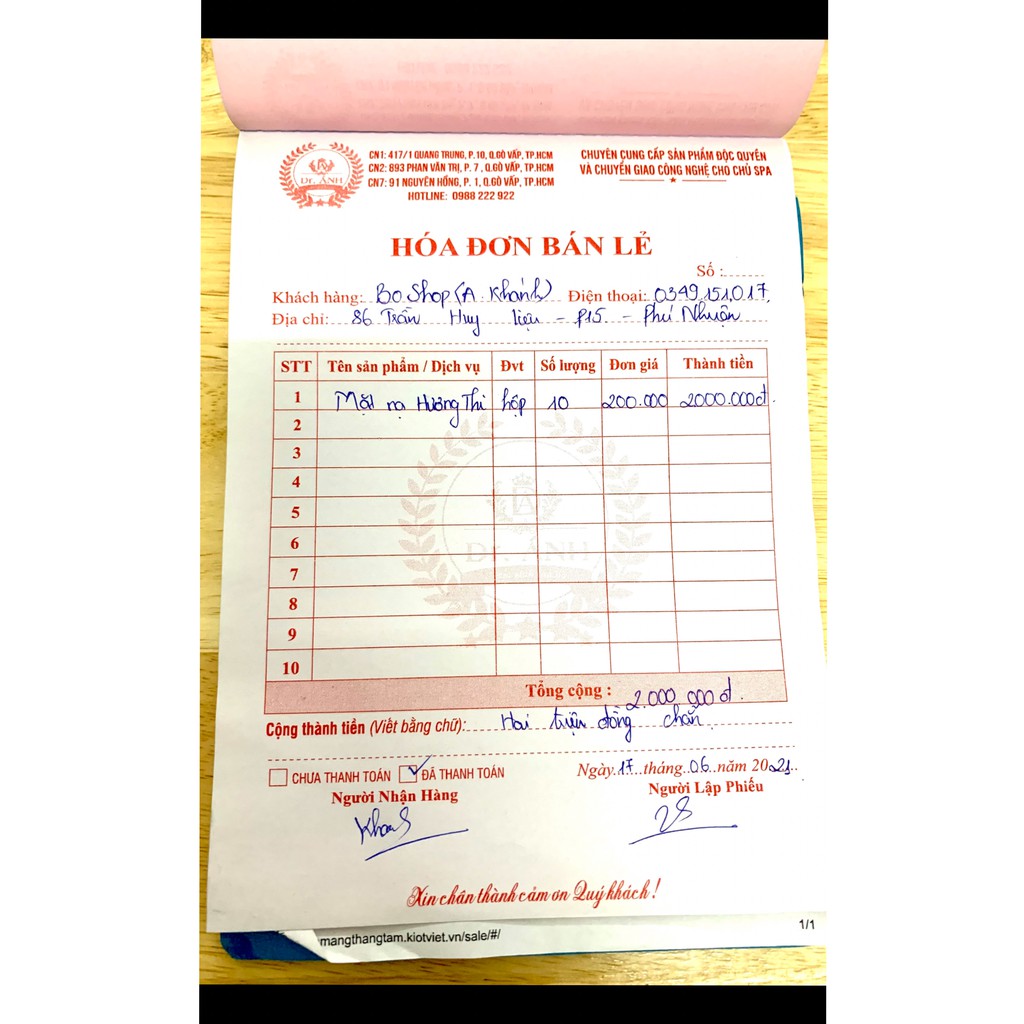 Dr. ANH
CN1: 417/1 QUANG TRUNG, P. 10, Q.GÒ VẤP, TP.HCM
CN2: 893 PHAN VĂN TRỊ, P. 7 , Q.GÒ VẤP, TP.HCM
CN7: 91 NGUYÊN HỒNG, P. 1, Q.GÒ VẤP, TP.HCM
HOTLINE: 0988 222 922
CHUYÊN CUNG CẤP SẢN PHẨM ĐỘC QUYỀN
VÀ CHUYỂN GIAO CÔNG NGHỆ CHO CHỦ SPA
HÓA ĐƠN BÁN LẺ
Số :
Khách hàng: Bo Shop (A. Khánh) Điện thoại: 0349.151.017
Địa chỉ: 86 Trần Huy liệu - P15 - Phú Nhuận
STT Tên sản phẩm / Dịch vụ Đvt Số lượng Đơn giá Thành tiền
1 Mặt nạ Hương Thi hộp 10 200.000 2000.000đ.
2
3
4
5
6
7
8
9
10
Dr. ANH
Tổng cộng : 2.000.000đ.
Cộng thành tiền (Viết bằng chữ): Hai triệu đồng chẵn
CHƯA THANH TOÁN ĐÃ THANH TOÁN
Ngày 17 tháng 06 năm 2021
Người Nhận Hàng Người Lập Phiếu
Xin chân thành cảm ơn Quý khách !
mangthangtam.kiotviet.vn/sale/#/
1/1